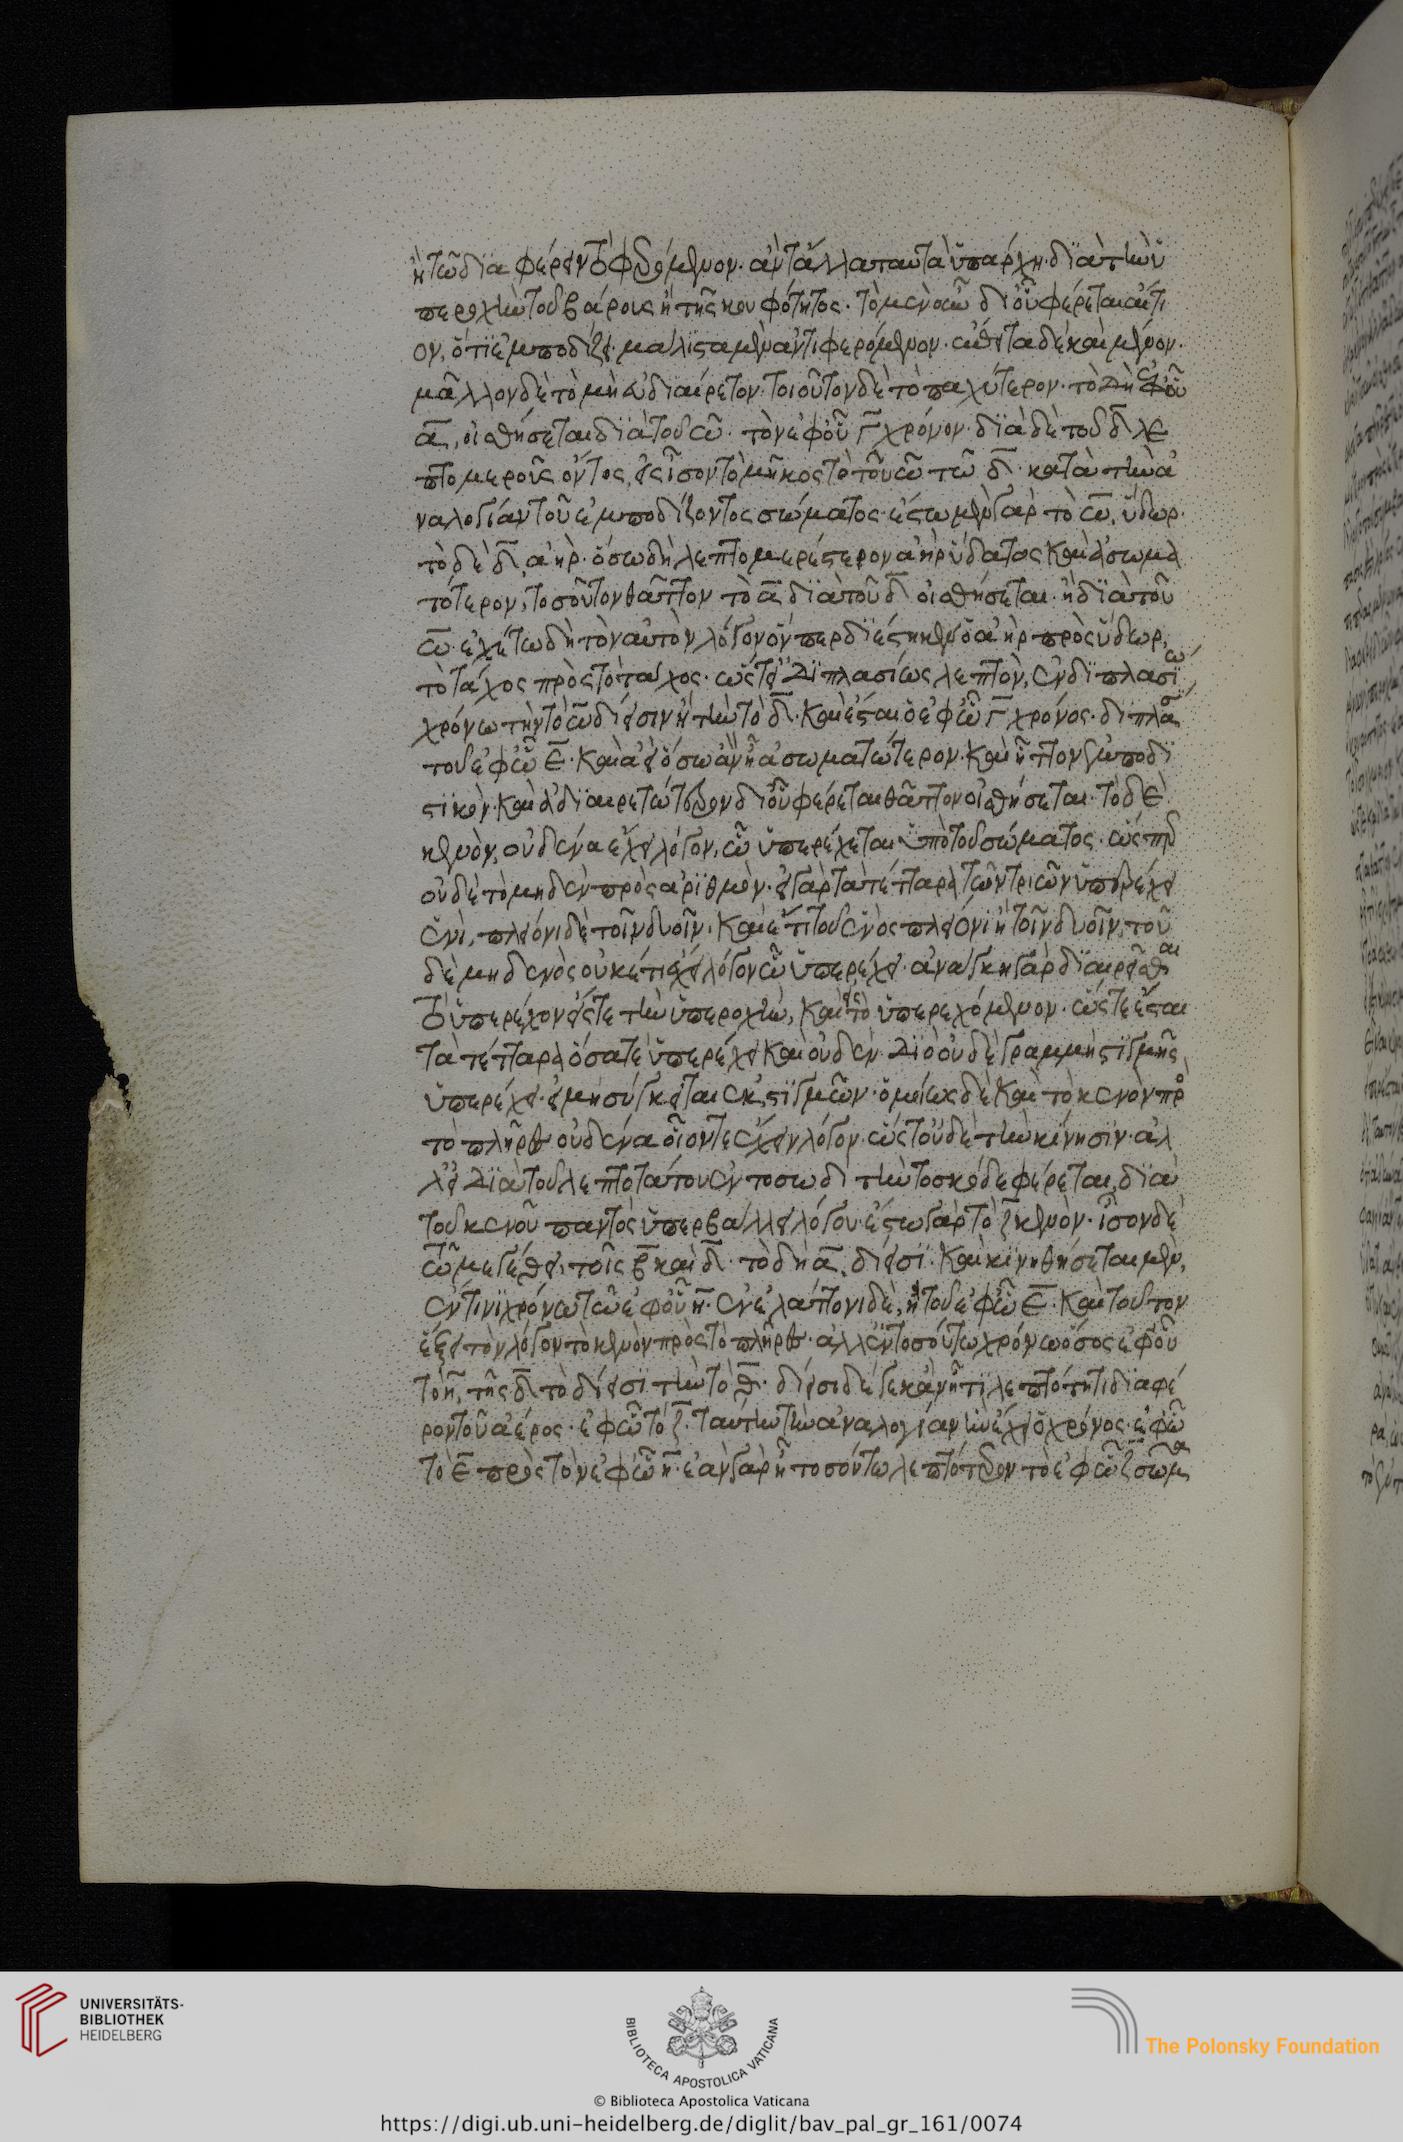 ἢ τῶ διαφέρειν τὸ φερόμενον. ἂν τἄλλα ταυτὰ ὑπάρχη. διὰ τὴν ὑ
περοχὴν τοῦ βάρους ἢ τῆς κουφότητος. τὸ μὲν οὖν δι οὗ φέρεται αἴτι
ον, ὅτι ἐμποδίζει. μάλιστα μὲν ἀντιφερόμενον. εἶτα δὲ καὶ μένον.
μᾶλλον δὲ τὸ μὴ εὐδιαίρετον. τοιοῦτον δὲ τὸ παχύτερον. τὸ δὴ ἐφ οὗ
α, οἰσθήσεται διὰ τοῦ β. τὸν ἐφ οὗ γ χρόνον. διὰ δὲ τοῦ δ λε
πτομεροῦς ὄντος, εἰ ἴσον τὸ μῆκος τὸ τοῦ β τῶ δ. κατὰ τὴν ἀ
ναλογίαν τοῦ ἐμποδίζοντος σώματος. ἔστω μὲν γὰρ τὸ β, ὕδωρ.
τὸ δὲ δ, ἀήρ. ὅσω δὴ λεπτομερέστερον ἀὴρ ὕδατος καὶ ἀσωμα
τότερον, τοσοῦτον θᾶττον τὸ α διὰ τοῦ δ οἰσθήσεται. ἢ διὰ τοῦ
β. ἐχέτω δὴ τὸν αὐτὸν λόγον ὅνπερ διέστηκεν ὁ ἀὴρ πρὸς ὕδωρ,
τὸ τάχος πρὸς τὸ τάχος. ὥστ εἰ διπλασίως λεπτὸν, ἐν διπλασίω
χρόνω τὴν τὸ β δίεισιν ἢ τὴν τὸ δ. καὶ ἔσται ὁ ἐφ ὧ γ χρόνος. διπλάσ
τοῦ ἐφ ὧ ε. καὶ ἀεὶ ὅσω ἂν ἦ ἀσωματώτερον. καὶ ἧττον ἐμποδι
στικὸν. καὶ εὐδιαιρετώτερον δι οὗ φέρεται θᾶττον οἰσθήσεται. τὸ δὲ
κενὸν, οὐδένα ἔχει λόγον, ὧ ὑπερέχεται ὑπὸ τοῦ σώματος. ὥσπερ
οὐδὲ τὸ μηδὲν πρὸς ἀριθμὸν. εἰ γὰρ τὰ τέτταρα τῶν τριῶν ὑπερέχει
ἑνὶ, πλείονι δὲ τοῖν δυοῖν. καὶ ἔτι τοῦ ἑνὸς πλείονι ἢ τοῖν δυοῖν, τοῦ
δὲ μηδενὸς οὐκέτι ἔχει λόγον ὧ ὑπερέχει. ἀνάγκη γὰρ διαιρεῖσθαι
τὸ ὑπερέχον εἴς τε τὴν ὑπεροχὴν, καὶ εἰς τὸ ὑπερεχόμενον. ὥστε ἔσται
τὰ τέτταρα ὅσα τε ὑπερέχει καὶ οὐδέν. διὸ οὐδὲ γραμμὴ στιγμῆς
ὑπερέχει. εἰ μὴ σύγκειται ἐκ στιγμῶν. ὁμοίως δὲ καὶ τὸ κενὸν πρὸς
τὸ πλῆρες οὐδένα οἷόν τε ἔχειν λόγον. ὥστ οὐδὲ τὴν κίνησιν. ἀλ
λ εἰ διὰ τοῦ λεπτοτάτου ἐν τοσωδὶ τὴν τοσήνδε φέρεται, διὰ
τοῦ κενοῦ παντὸς ὑπερβάλλει λόγου. ἔστω γὰρ τὸ ζ κενὸν. ἴσον δὲ
τῶ μεγέθει, τοῖς β καὶ δ. τὸ δὴ α, δίεισι. καὶ κινηθήσεται μὲν,
ἔν τινι χρόνω τῶ ἐφ οὗ η. ἐν ἐλάττονι δὲ, ἢ τοῦ ἐφ ὧ ε. καὶ τοῦτον
ἕξει τὸν λόγον τὸ κενὸν πρὸς τὸ πλῆρες. ἀλλ ἐν τοσούτω χρόνω ὅσος ἐφ οὗ
τὸ η, τῆς δ τὸ δίεισι τὴν τὸ θ. δίεισι δέ γε κἂν ἦ τι λεπτότητι διαφέ
ρον τοῦ ἀέρος. ἐφ ὧ τὸ ζ. ταύτην τὴν ἀναλογίαν ἣν ἔχει ὁ χρόνος. ἐφ ὧ
τὸ ε πρὸς τὸν ἐφ ὧ η. ἐὰν γὰρ ἦ τοσούτω λεπτότερον τὸ ἐφ ὧ ζ σῶμα
UNIVERSITÄTS-
BIBLIOTHEK
HEIDELBERG
BIBLIOTECA APOSTOLICA VATICANA
© Biblioteca Apostolica Vaticana
The Polonsky Foundation
https://digi.ub.uni-heidelberg.de/diglit/bav_pal_gr_161/0074